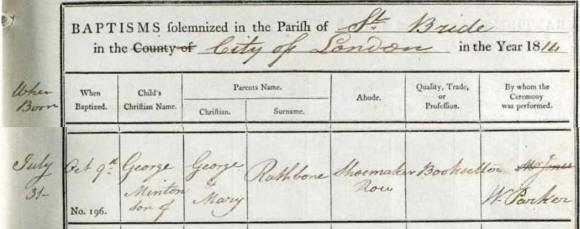 BAPTISMS solemnized in the Parish of St. Bride
in the County of City of London in the Year 1814
When Born
When Baptized.
Child's Christian Name.
Parents Name.
Christian.
Surname.
Abode.
Quality, Trade, or Profession.
By whom the Ceremony was performed.
July 31
Oct 9th
No. 196.
George Minton son of
George & Mary
Rathbone
Shoemaker Row
Bookseller
W. Parker